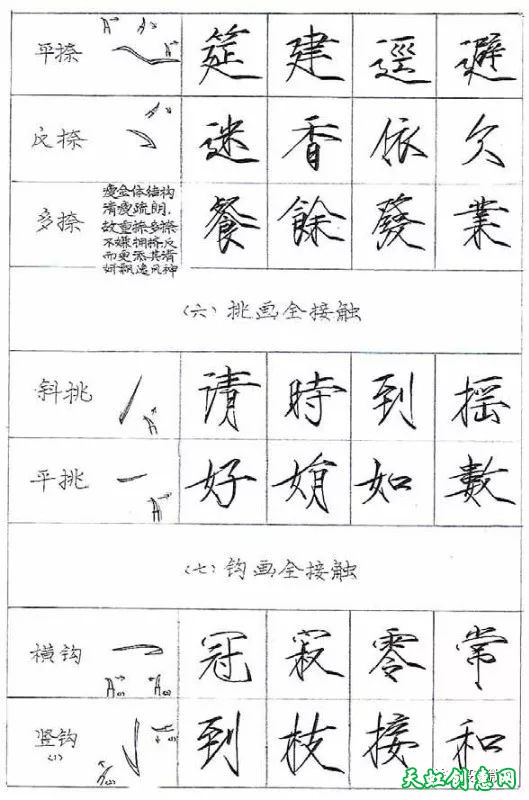 平捺 筵 建 逕 避
反捺 迷 香 依 欠
多捺 瘦金体结构 餐 餘 發 業
清瘦疏朗,
故重捺多捺
不嫌拥挤反
而更添其清
妍飘逸风神
(六)挑画全接触
斜挑 请 時 到 摇
平挑 好 如 數
(七)钩画全接触
横钩 冠 寂 零 常
竖钩 到 枝 接 和
(1)
天虹创意网